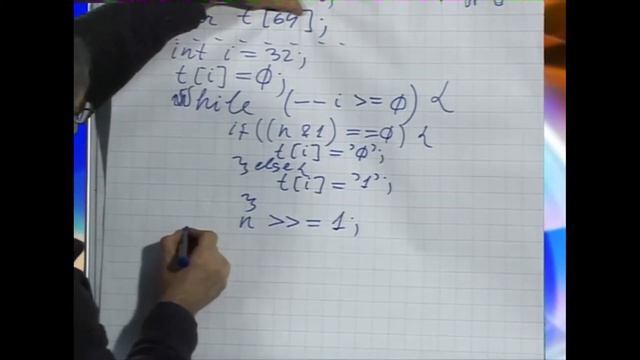 t[64];
int i = 32;
t[i] = Ø;
While (--i >= Ø) {
if ((n & 1) == Ø) {
t[i] = 'Ø';
} else {
t[i] = '1';
}
n >>= 1;